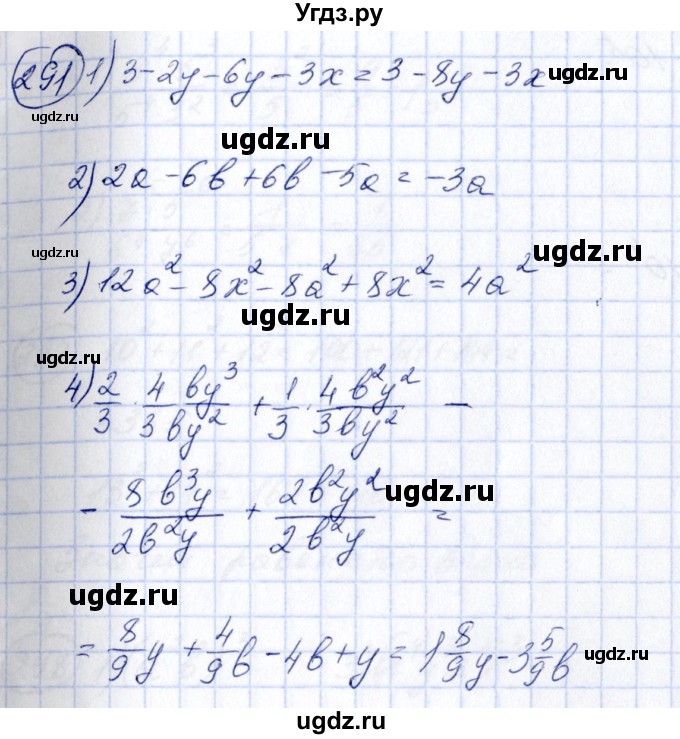 Угдз.ру
291 1) 3-2y-6y-3x=3-8y-3x
ugdz.ru
ugdz.ru
2) 2a-6b+6b-5a=-3a
ugdz.ru
ugdz.ru
ugdz.ru
3) 12a²-8x²-8a²+8x²=4a²
ugdz.ru
ugdz.ru
4) 2/3 · 4/3 by³/by² + 1/3 · 4b²y²/3by² -
ugdz.ru
ugdz.ru
- 8b³y/2b²y + 2b²y²/2b²y =
ugdz.ru
ugdz.ru
= 8/9 y + 4/9 b - 4b + y = 1 8/9 y - 3 5/9 b
ugdz.ru
ugdz.ru
ugdz.ru